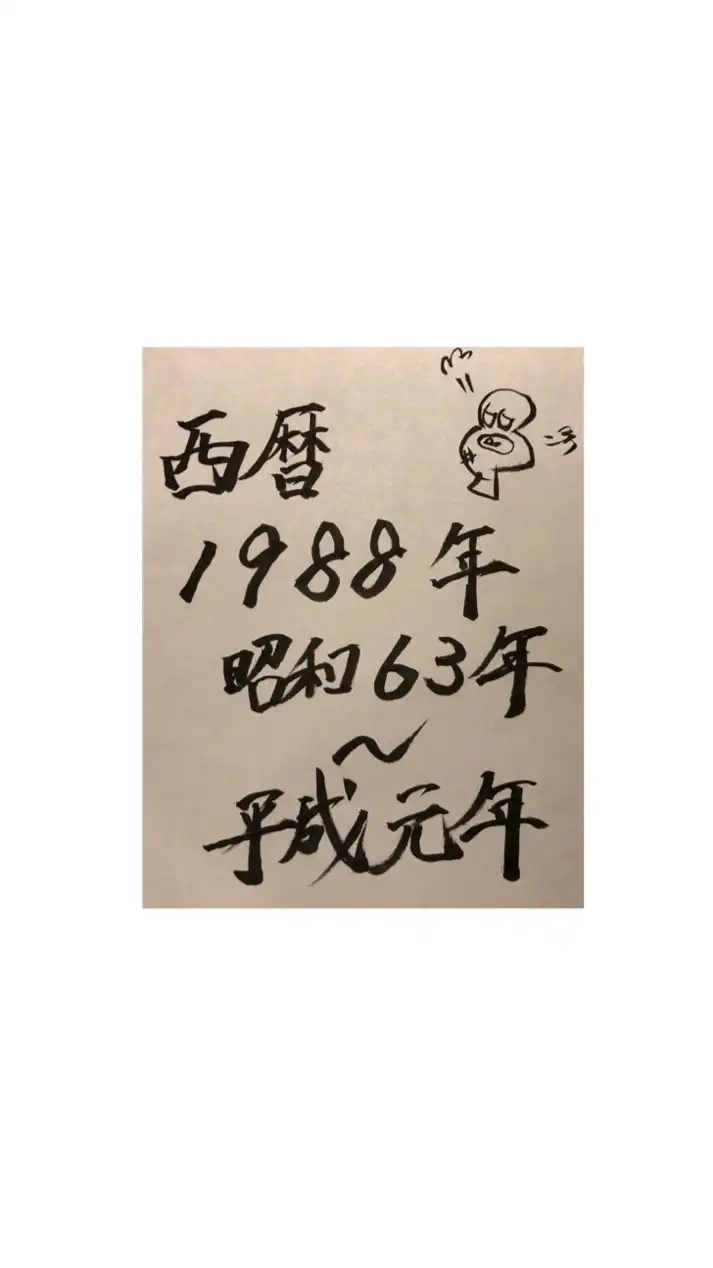 西暦
1988年
昭和63年
～
平成元年